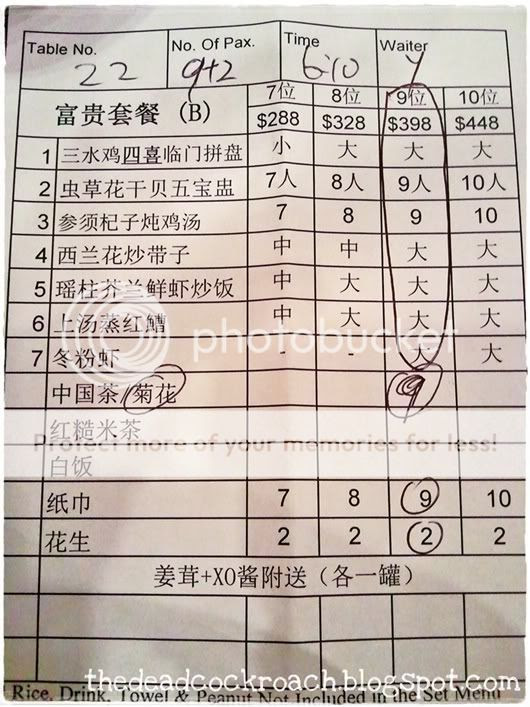 Table No. 22 No. Of Pax. 9+2 Time 6:10 Waiter
富贵套餐 (B) 7位 8位 9位 10位
$288 $328 $398 $448
1 三水鸡四喜临门拼盘 小 大 大 大
2 虫草花干贝五宝盅 7人 8人 9人 10人
3 参须杞子炖鸡汤 7 8 9 10
4 西兰花炒带子 中 中 大 大
5 瑶柱芥兰鲜虾炒饭 中 大 大 大
6 上汤蒸红鰽 中 大 大 大
7 冬粉虾 - - 大 大
中国茶/菊花 9
红糙米茶
白饭
纸巾 7 8 9 10
花生 2 2 2 2
姜茸+XO酱附送（各一罐）
photobucket
Protect more of your memories for less!
thedeadcockroach.blogspot.com
Rice, Drink, Towel & Peanut Not Included in the Set Menu